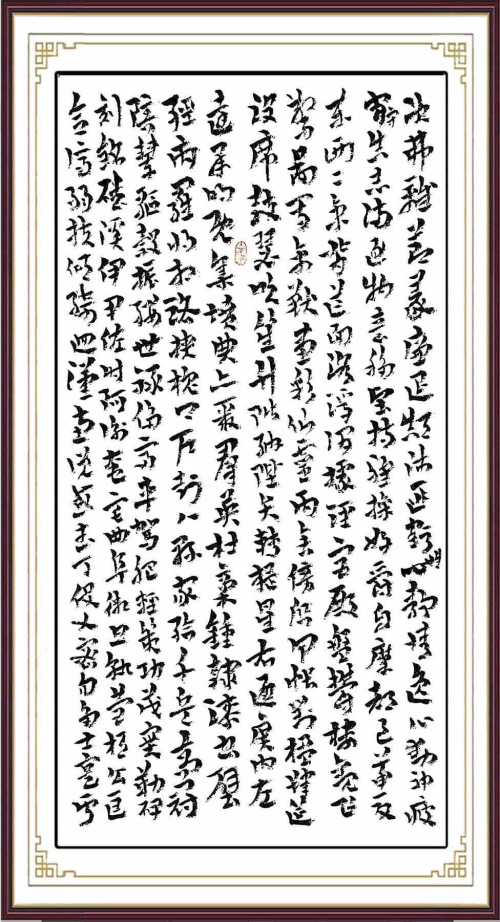 次弗離節義廉退顛沛匪虧性靜情逸心動神疲
守真志滿逐物意移堅持雅操好爵自縻都邑華夏
東西二京背芒面洛浮渭據涇宮殿盤鬱樓觀飛
驚圖寫禽獸畫彩仙靈丙舍傍啟甲帳對楹肆筵
設席鼓瑟吹笙升階納陛弁轉疑星右通廣內左
達承明既集墳典亦聚群英杜稾鍾隸漆書壁
經府羅將相路俠槐卿戶封八縣家給千兵高冠
陪輦驅轂振纓世祿侈富車駕肥輕策功茂實勒碑
刻銘磻溪伊尹佐時阿衡奄宅曲阜微旦孰營桓公匡
合濟弱扶傾綺迴漢惠說感武丁俊乂密勿多士寔寧